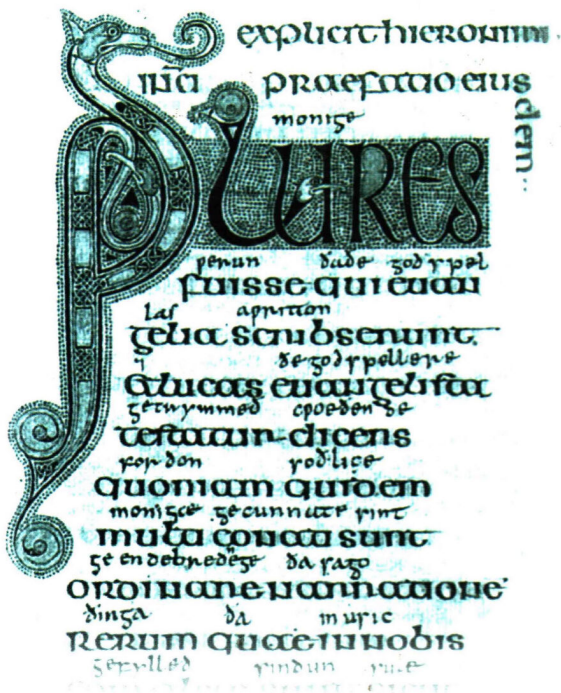 explicit hieronimi
inci praefatio eius
dem
monige
PLURES
werun ðaðe godspel
fuisse qui euan
las awriton
gelia scribserunt
ðe godspellere
et lucas euangelista
getrymmed cwoeðende
testatur dicens
forðon soðlice
quoniam quidem
monigce gecunnate sint
multi conati sunt
ge endebredege ða sago
ordinare narratione
ðinga ða in usic
rerum quae in nobis
gefylled sindun